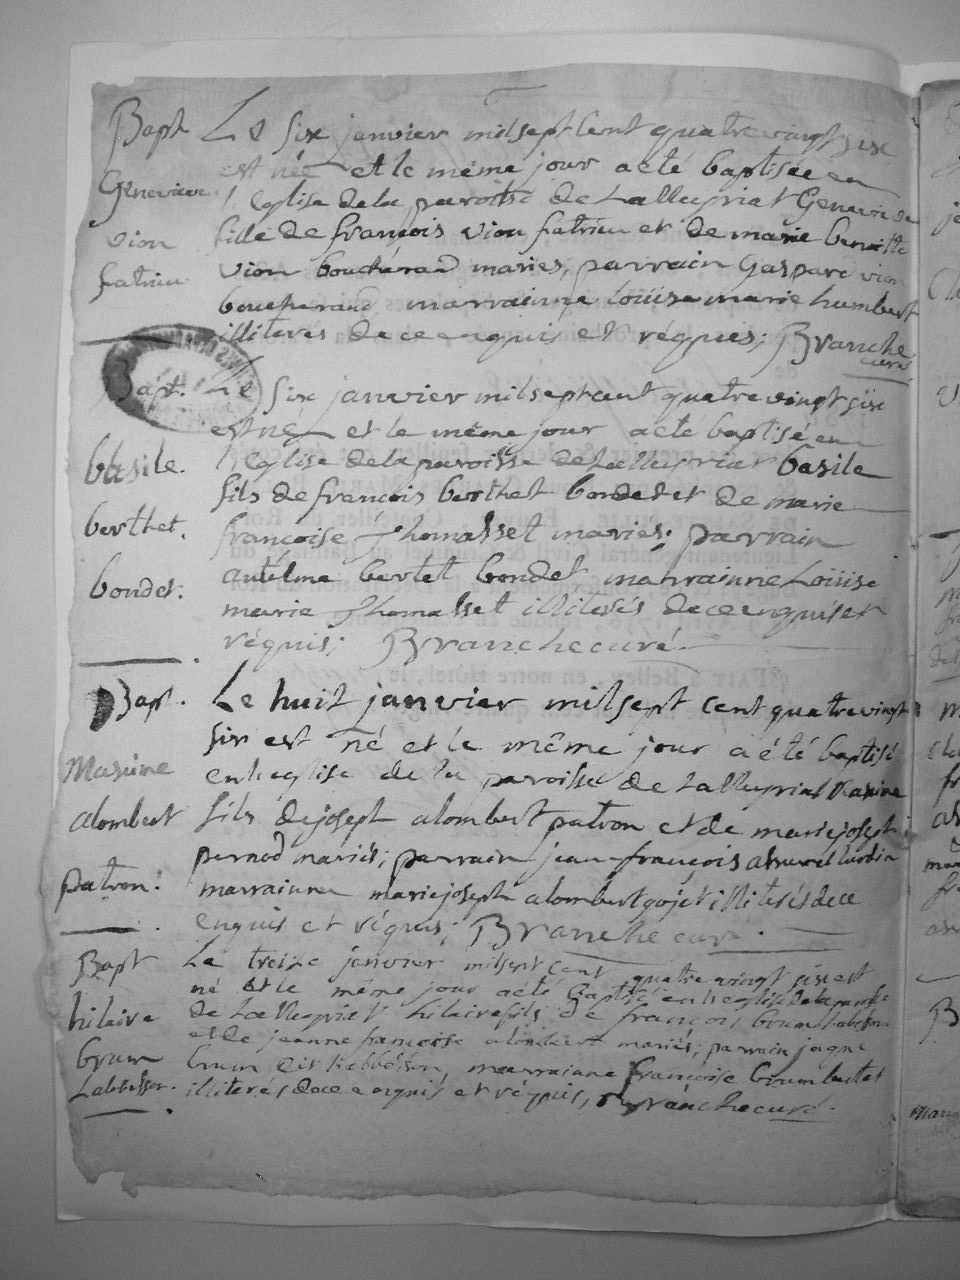 Bapt
Genevieve
vion
fatrieu
Le six janvier mil sept cent quatre vingt six
est née et le méme jour a eté baptisée en
l'eglise de la paroisse de Lalleyriat Genevieve
fille de françois vion fatrieu et de marie benoitte
vion boucherand mariés, parrain Gaspard vion
boucherand marrainne Loüise marie humbert
illiterés de ce enquis et réquis; Branche
curé
Bapt.
basile.
berthet.
bondet.
Le six janvier mil sept cent quatre vingt six
est né et le méme jour a eté baptisé en
l'eglise de la paroisse de Lalleyriat basile
fils de françois berthet bondet et de marie
françoise Thomasset mariés; parrain
antelme bertet bondet marrainne Loüise
marie Thomasset illiterés de ce enquis et
réquis; Branche curé.
Bapt.
Maxime
alombert
patron.
Le huit janvier mil sept cent quatre vingt
six est né et le méme jour a été baptisé
en l'eglise de la paroisse de Lalleyriat Maxime
fils de joseph alombert patron et de marie joseph
pernod mariés; parrain jean françois
marrainne marie joseph alombert gojet illiterés de ce
enquis et réquis; Branche curé.
Bapt
hilaire
brun
Labesson.
Le treize janvier mil sept cent quatre vingt six est
né et le méme jour a eté Baptisé en l'eglise de la paroisse
de Lalleyriat hilaire fils de françois brun Labesson
et de jeanne françoise alombert mariés; parrain
brun dit marrainne françoise brun
illiterés de ce enquis et réquis, Branche curé.